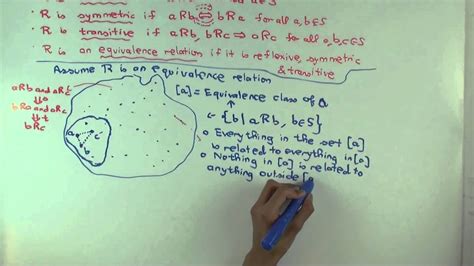 R is symmetric if aRb ⇔ bRa for all a,b∈S
R is transitive if aRb, bRc ⇒ aRc for all a,b,c∈S
R is an equivalence relation if it is reflexive, symmetric
& transitive
Assume R is an equivalence relation
aRb and aRc
bRa and aRc
bRc
a
b
c
[a] = Equivalence class of a
= {b | aRb, b∈S}
Everything in the set [a]
is related to everything in [a]
Nothing in [a] is related to
anything outside [a